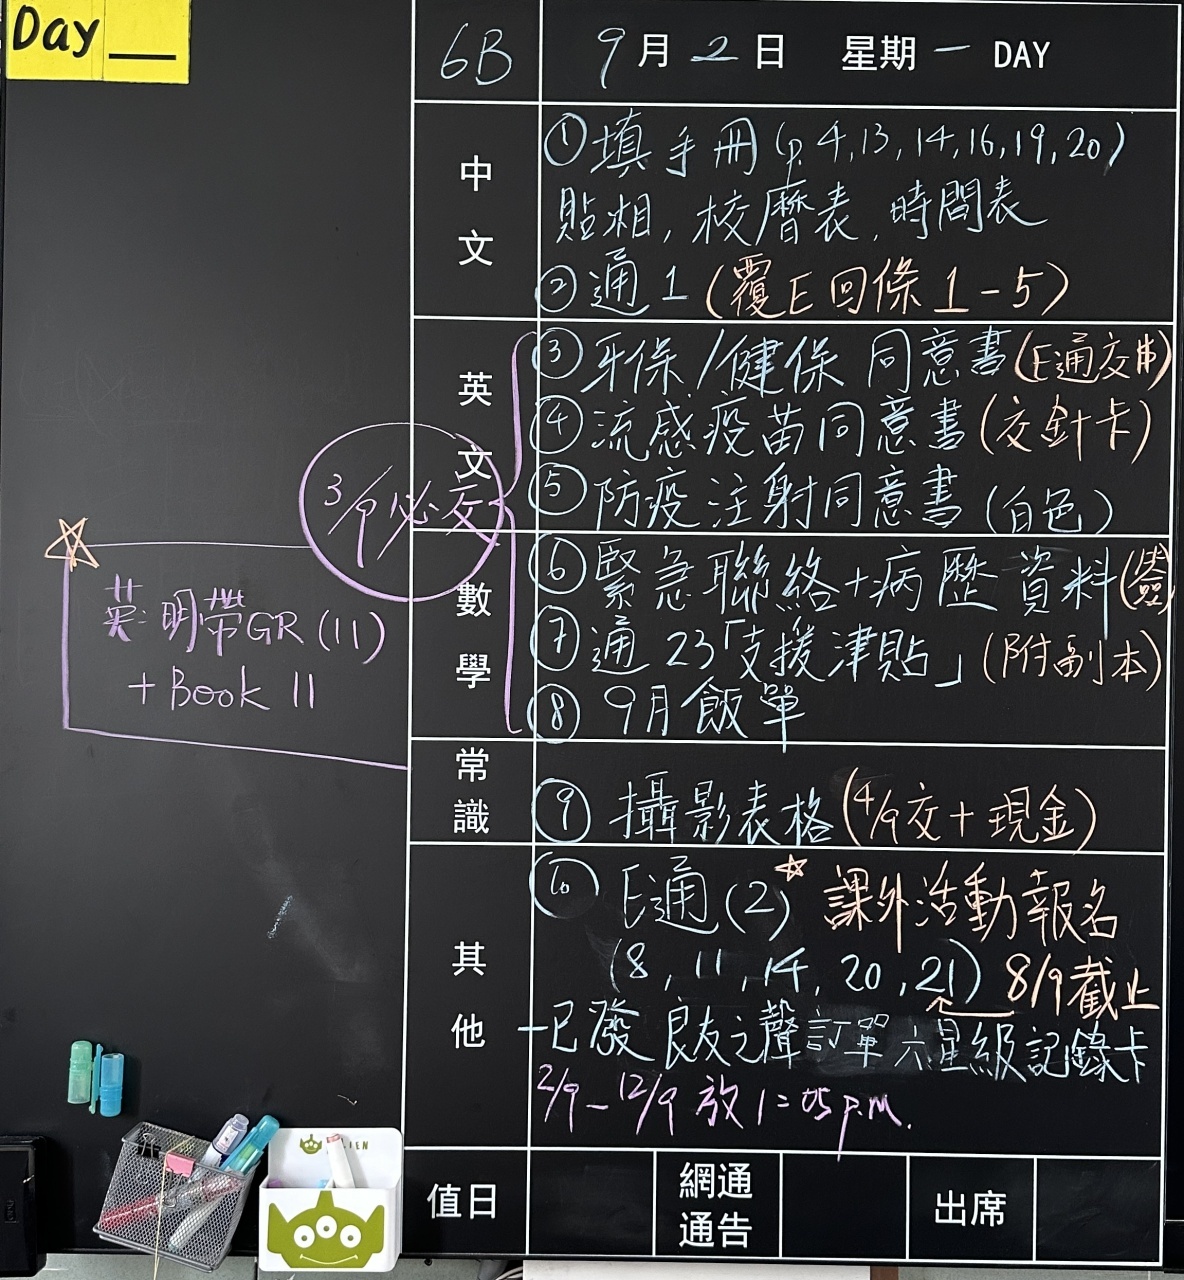 Day __
6B
9月2日 星期一 DAY
中文
①填手冊(p.4,13,14,16,19,20)
貼相,校曆表,時間表
②通1(覆E回條1-5)
英文
③牙保/健保同意書(E通交申)
④流感疫苗同意書(交針卡)
⑤防疫注射同意書(白色)
3/9必交
數學
⑥緊急聯絡+病歷資料(簽)
⑦通23「支援津貼」(附副本)
⑧9月飯單
英:明帶GR(11)
+Book 11
常識
⑨攝影表格(4/9交+現金)
其他
⑩E通(2)☆課外活動報名
(8,11,14,20,21)8/9截止
-已發良友之聲訂單六星級記錄卡
2/9-12/9放1:05p.m.
值日
網通通告
出席